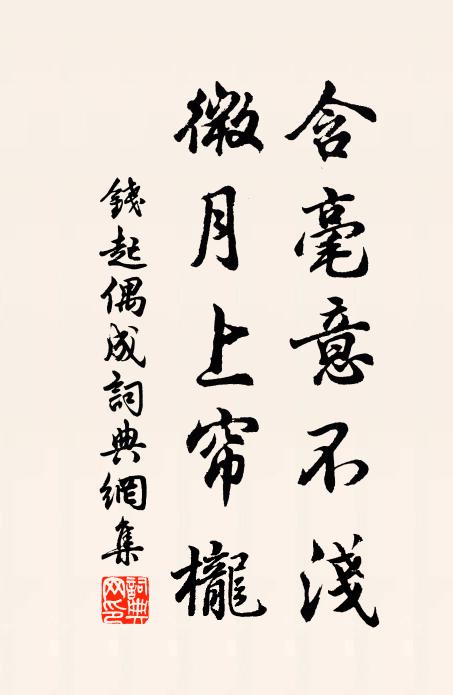 含毫意不淺
微月上帘櫳
錢起偶成詞典網集
詞典
网印